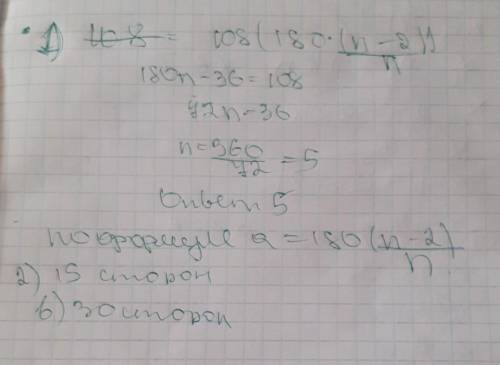 1) 108 = 108(180·(n-2))/n
180n-36=108
72n-36
n=360/72=5
Ответ 5
по формуле a=180(n-2)/n
2) 15 сторон
б) 30 сторон